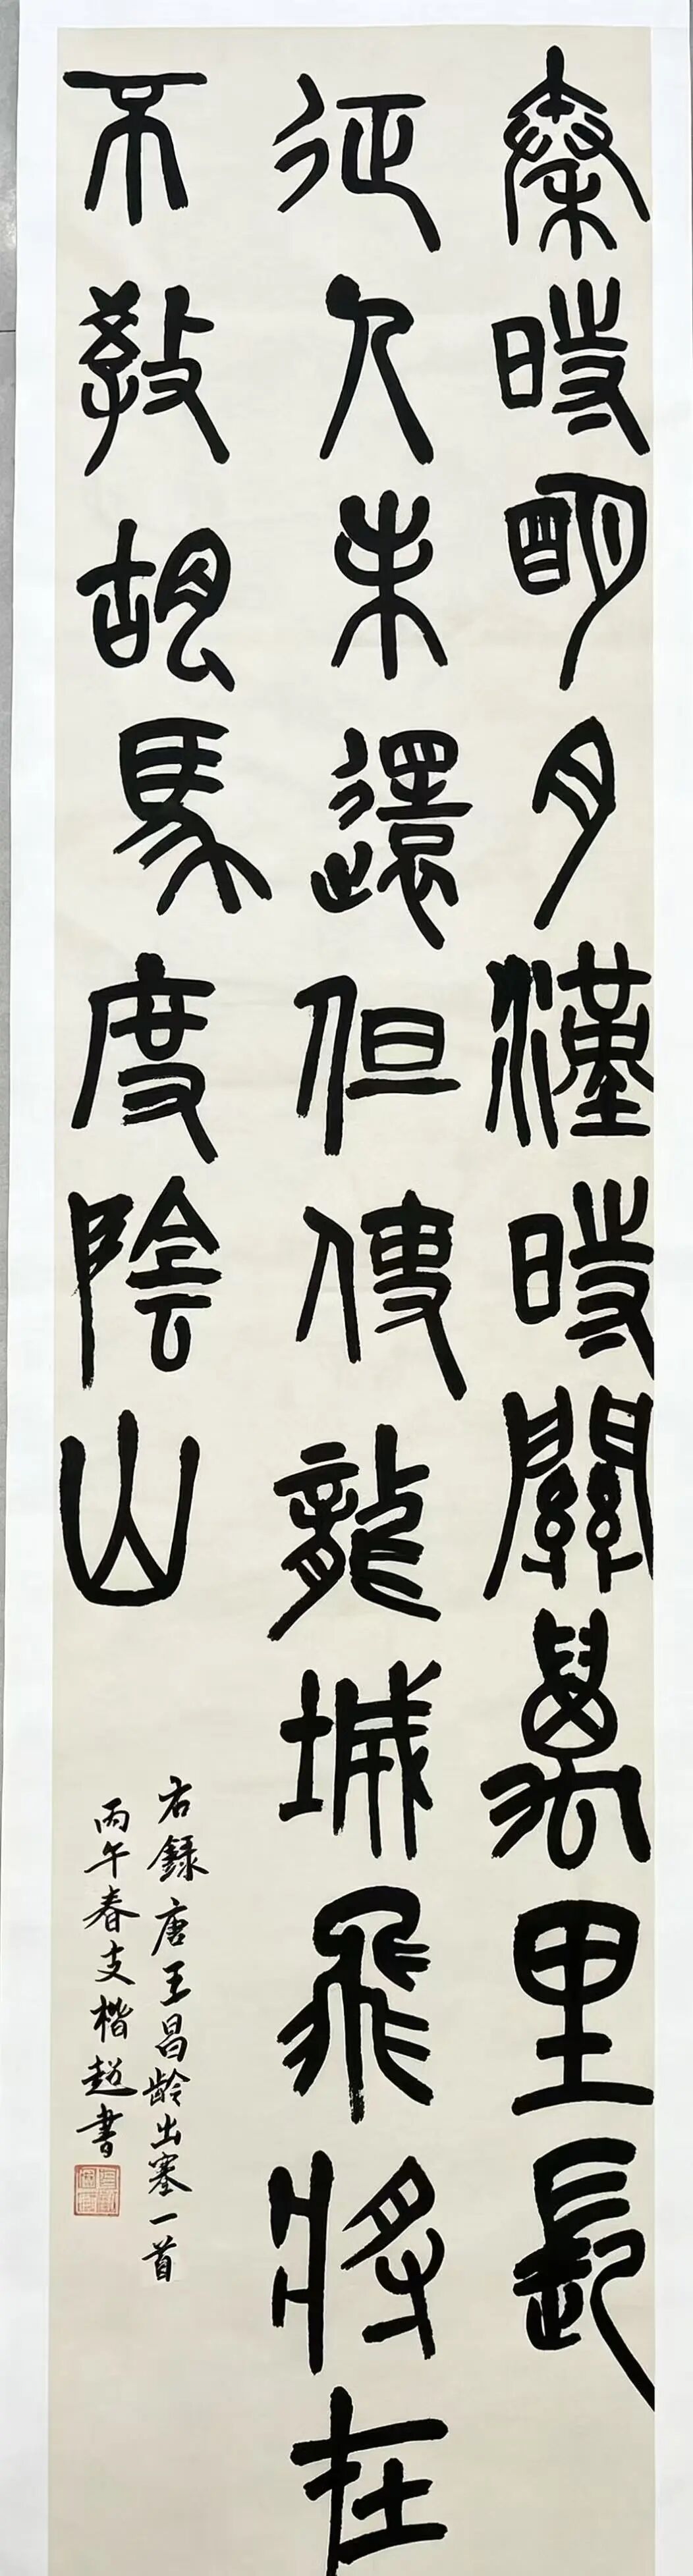 秦時明月漢時關萬里長
征人未還但使龍城飛將在
不教胡馬度陰山
右錄唐王昌齡出塞一首
丙午春支楷書